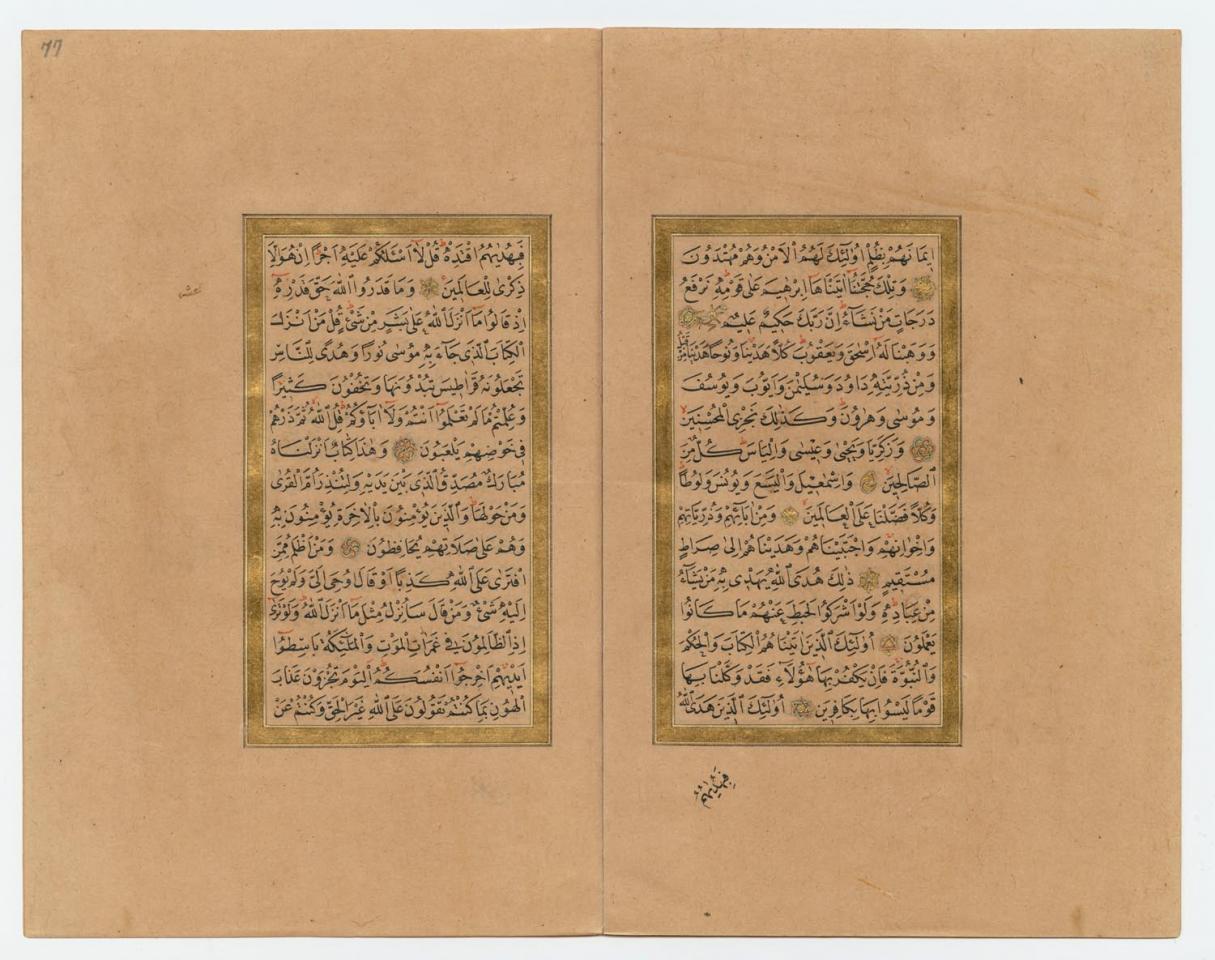 اِيمَانَهُمْ بِظُلْمٍ اُولٰئِكَ لَهُمُ الْاَمْنُ وَهُمْ مُهْتَدُونَ
وَتِلْكَ حُجَّتُنَا اٰتَيْنَاهَا اِبْرٰهِيمَ عَلٰى قَوْمِهِ نَرْفَعُ
دَرَجَاتٍ مَنْ نَشَاءُ اِنَّ رَبَّكَ حَكِيمٌ عَلِيمٌ
وَوَهَبْنَا لَهُ اِسْحٰقَ وَيَعْقُوبَ كُلًّا هَدَيْنَا وَنُوحًا هَدَيْنَا مِنْ قَبْلُ
وَمِنْ ذُرِّيَّتِهِ دَاوُدَ وَسُلَيْمٰنَ وَاَيُّوبَ وَيُوسُفَ
وَمُوسٰى وَهٰرُونَ وَكَذٰلِكَ نَجْزِى الْمُحْسِنِينَ
وَزَكَرِيَّا وَيَحْيٰى وَعِيسٰى وَاِلْيَاسَ كُلٌّ مِنَ
الصَّالِحِينَ وَاِسْمٰعِيلَ وَالْيَسَعَ وَيُونُسَ وَلُوطًا
وَكُلًّا فَضَّلْنَا عَلَى الْعَالَمِينَ وَمِنْ اٰبَائِهِمْ وَذُرِّيَّاتِهِمْ
وَاِخْوَانِهِمْ وَاجْتَبَيْنَاهُمْ وَهَدَيْنَاهُمْ اِلٰى صِرَاطٍ
مُسْتَقِيمٍ ذٰلِكَ هُدَى اللّٰهِ يَهْدِى بِهِ مَنْ يَشَاءُ
مِنْ عِبَادِهِ وَلَوْ اَشْرَكُوا لَحَبِطَ عَنْهُمْ مَا كَانُوا
يَعْمَلُونَ اُولٰئِكَ الَّذِينَ اٰتَيْنَاهُمُ الْكِتَابَ وَالْحُكْمَ
وَالنُّبُوَّةَ فَاِنْ يَكْفُرْ بِهَا هٰؤُلَاءِ فَقَدْ وَكَّلْنَا بِهَا
قَوْمًا لَيْسُوا بِهَا بِكَافِرِينَ اُولٰئِكَ الَّذِينَ هَدَى اللّٰهُ
فَبِهُدٰيهُمُ
77
فَبِهُدٰيهُمُ اقْتَدِهْ قُلْ لَا اَسْئَلُكُمْ عَلَيْهِ اَجْرًا اِنْ هُوَ اِلَّا
ذِكْرٰى لِلْعَالَمِينَ وَمَا قَدَرُوا اللّٰهَ حَقَّ قَدْرِهِ
اِذْ قَالُوا مَا اَنْزَلَ اللّٰهُ عَلٰى بَشَرٍ مِنْ شَىْءٍ قُلْ مَنْ اَنْزَلَ
الْكِتَابَ الَّذِى جَاءَ بِهِ مُوسٰى نُورًا وَهُدًى لِلنَّاسِ
تَجْعَلُونَهُ قَرَاطِيسَ تُبْدُونَهَا وَتُخْفُونَ كَثِيرًا
وَعُلِّمْتُمْ مَا لَمْ تَعْلَمُوا اَنْتُمْ وَلَا اٰبَاؤُكُمْ قُلِ اللّٰهُ ثُمَّ ذَرْهُمْ
فِى خَوْضِهِمْ يَلْعَبُونَ وَهٰذَا كِتَابٌ اَنْزَلْنَاهُ
مُبَارَكٌ مُصَدِّقُ الَّذِى بَيْنَ يَدَيْهِ وَلِتُنْذِرَ اُمَّ الْقُرٰى
وَمَنْ حَوْلَهَا وَالَّذِينَ يُؤْمِنُونَ بِالْاٰخِرَةِ يُؤْمِنُونَ بِهِ
وَهُمْ عَلٰى صَلَاتِهِمْ يُحَافِظُونَ وَمَنْ اَظْلَمُ مِمَّنِ
افْتَرٰى عَلَى اللّٰهِ كَذِبًا اَوْ قَالَ اُوحِىَ اِلَىَّ وَلَمْ يُوحَ
اِلَيْهِ شَىْءٌ وَمَنْ قَالَ سَاُنْزِلُ مِثْلَ مَا اَنْزَلَ اللّٰهُ وَلَوْ تَرٰى
اِذِ الظَّالِمُونَ فِى غَمَرَاتِ الْمَوْتِ وَالْمَلٰئِكَةُ بَاسِطُوا
اَيْدِيهِمْ اَخْرِجُوا اَنْفُسَكُمُ الْيَوْمَ تُجْزَوْنَ عَذَابَ
الْهُونِ بِمَا كُنْتُمْ تَقُولُونَ عَلَى اللّٰهِ غَيْرَ الْحَقِّ وَكُنْتُمْ عَنْ
عشر